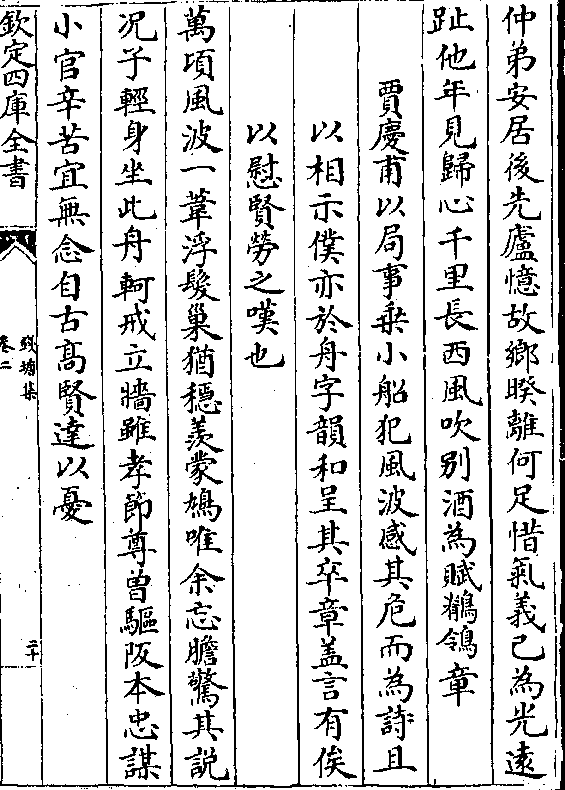 仲弟安居後先廬憶故鄉睽離何足惜氣義已為光遠
趾他年見歸心千里長西風吹别酒為賦鶺鴒章
賈慶甫以局事乗小船犯風波感其危而為詩且
以相示僕亦於舟字韻和呈其卒章盖言有俟
以慰賢勞之嘆也
萬頃風波一葦浮髮巢猶穩羡蒙鳩唯余忘膽驚其説
况子輕身坐此舟軻戒立牆雖孝節尊曽驅阪本忠謀
小官辛苦宜無念自古髙賢達以憂
欽定四庫全書
錢塘集
卷二
二十